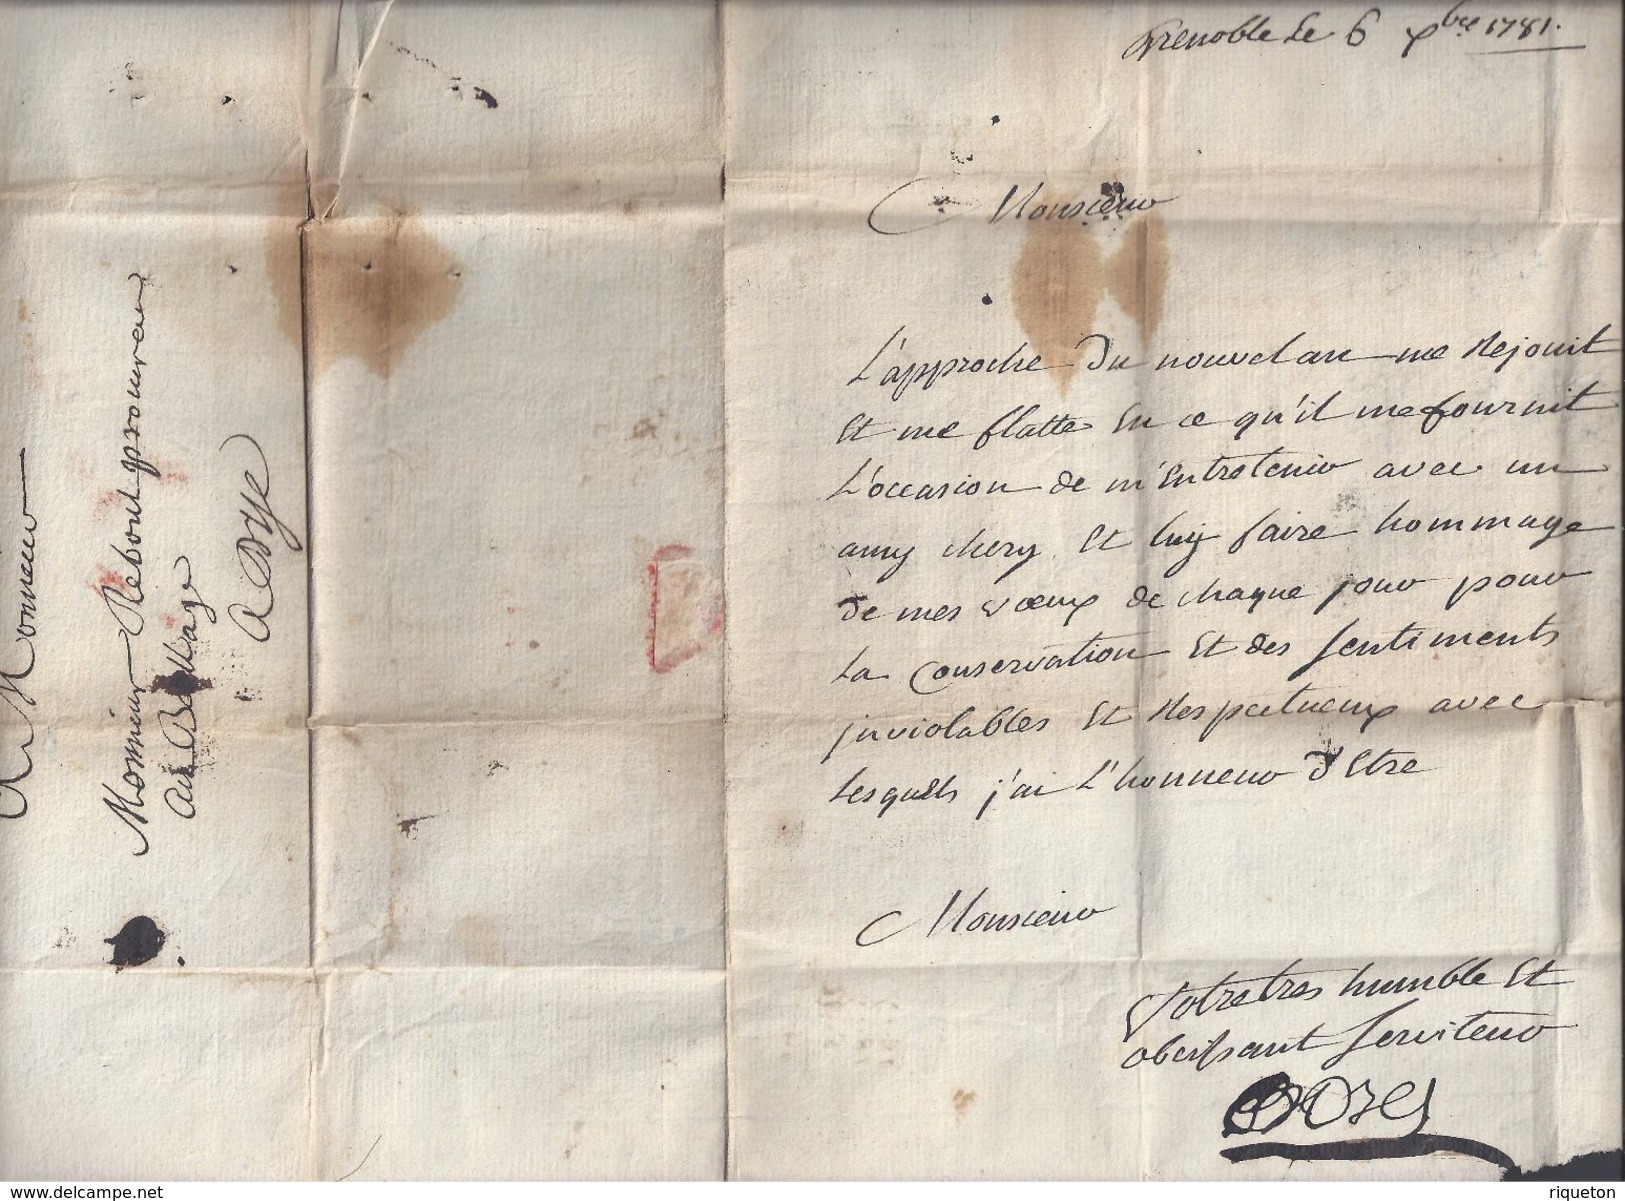 Grenoble le 6 xbre 1781.
Monsieur
L'approche du nouvel an me rejouit
et me flatte en ce qu'il me fournit
l'occasion de m'entretenir avec un
amy chery et luy faire hommage
de mes voeux de chaque jour pour
la conservation et des sentiments
inviolables et respectueux avec
lesquels j'ai l'honneur d'etre
Monsieur
Votre tres humble et
obeissant serviteur
A Monsieur
Monsieur Reboul procureur
au Bailliage
A Dye
www.delcampe.net
riqueton